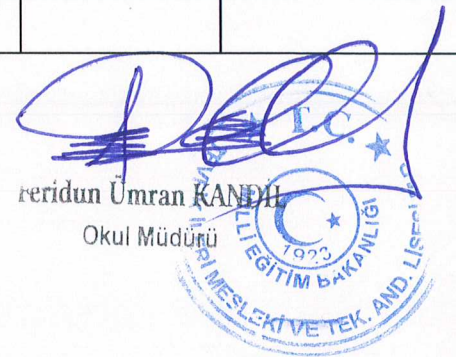 Feridun Ümran KANDİL
Okul Müdürü
T.C.
MİLLİ EĞİTİM BAKANLIĞI
1923
MESLEKİ VE TEK. AND. LİSESİ